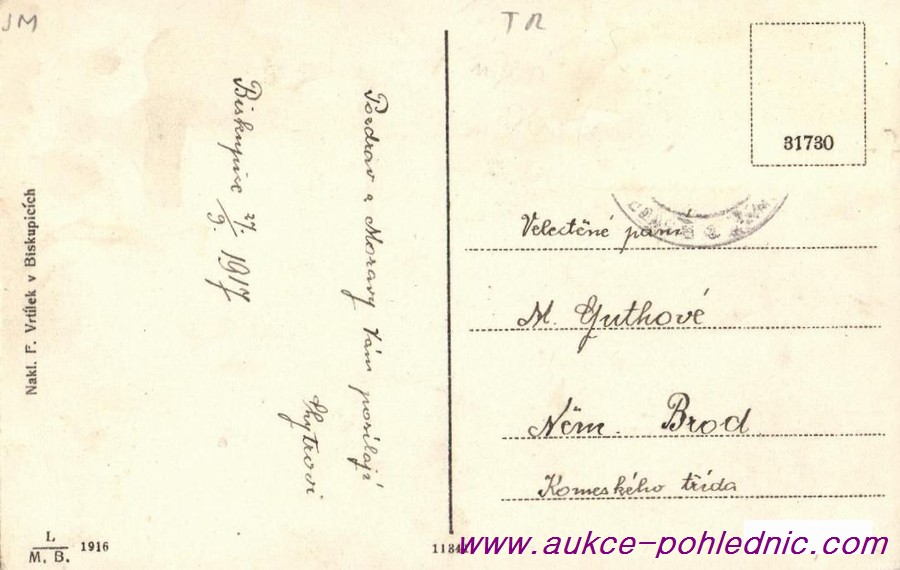 JM
TR
Biskupice 27/9. 1917
Pozdrav z Moravy Vám posílají
Chytrovi
Nakl. F. Vrtílek v Biskupicích
L
M. B. 1916
1134
31730
Velectěné paní
M. Guthové
Něm. Brod
Komeského třída
www.aukce-pohlednic.com